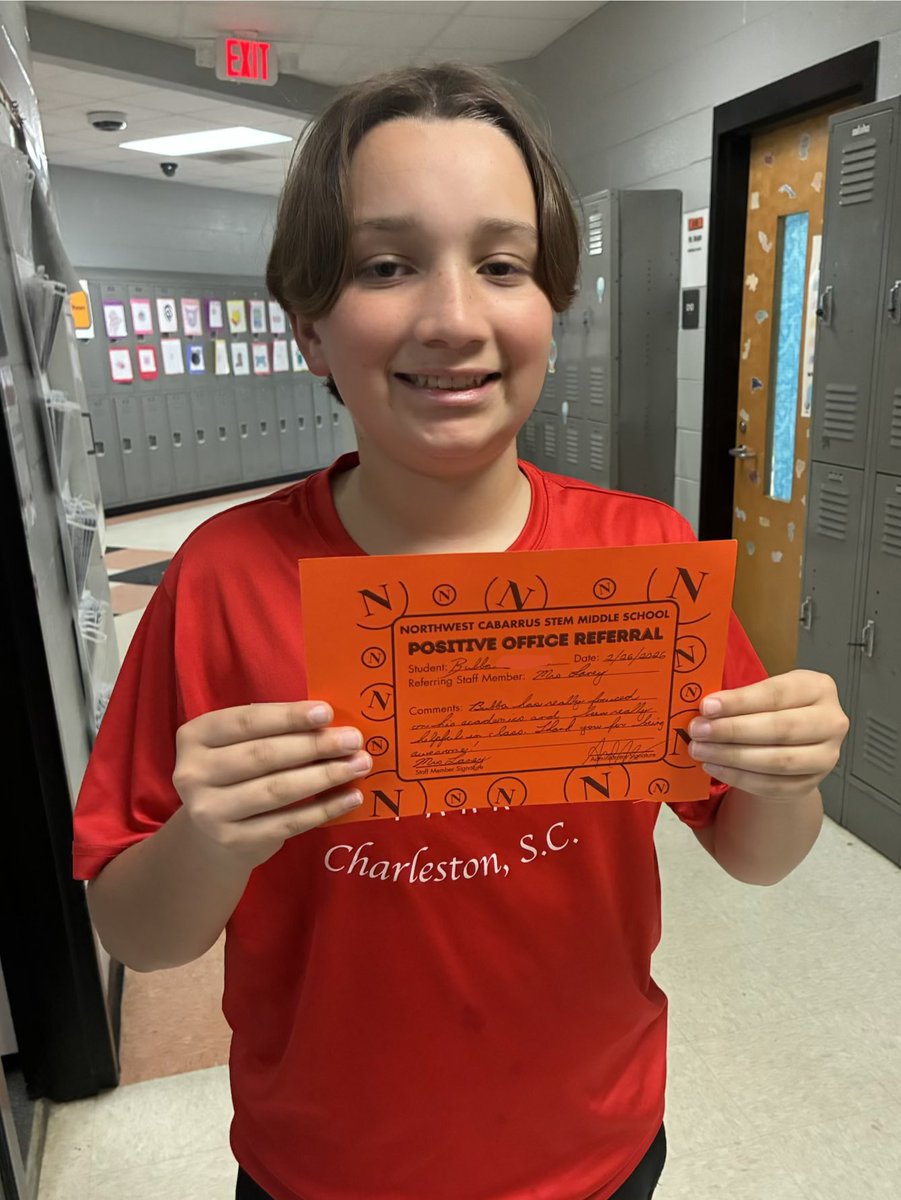 EXIT
N N N N N
NORTHWEST CABARRUS STEM MIDDLE SCHOOL
POSITIVE OFFICE REFERRAL
Student: Bubba Date: 2/26/2026
Referring Staff Member: Mrs Lacey
N N
N N
Comments: Bubba has really focused
on his academics and been really
helpful in class. Thank you for being
awesome!
N N
Mrs Lacey
Staff Member Signature Administrator Signature
N N N N N
PARK
Charleston, S.C.